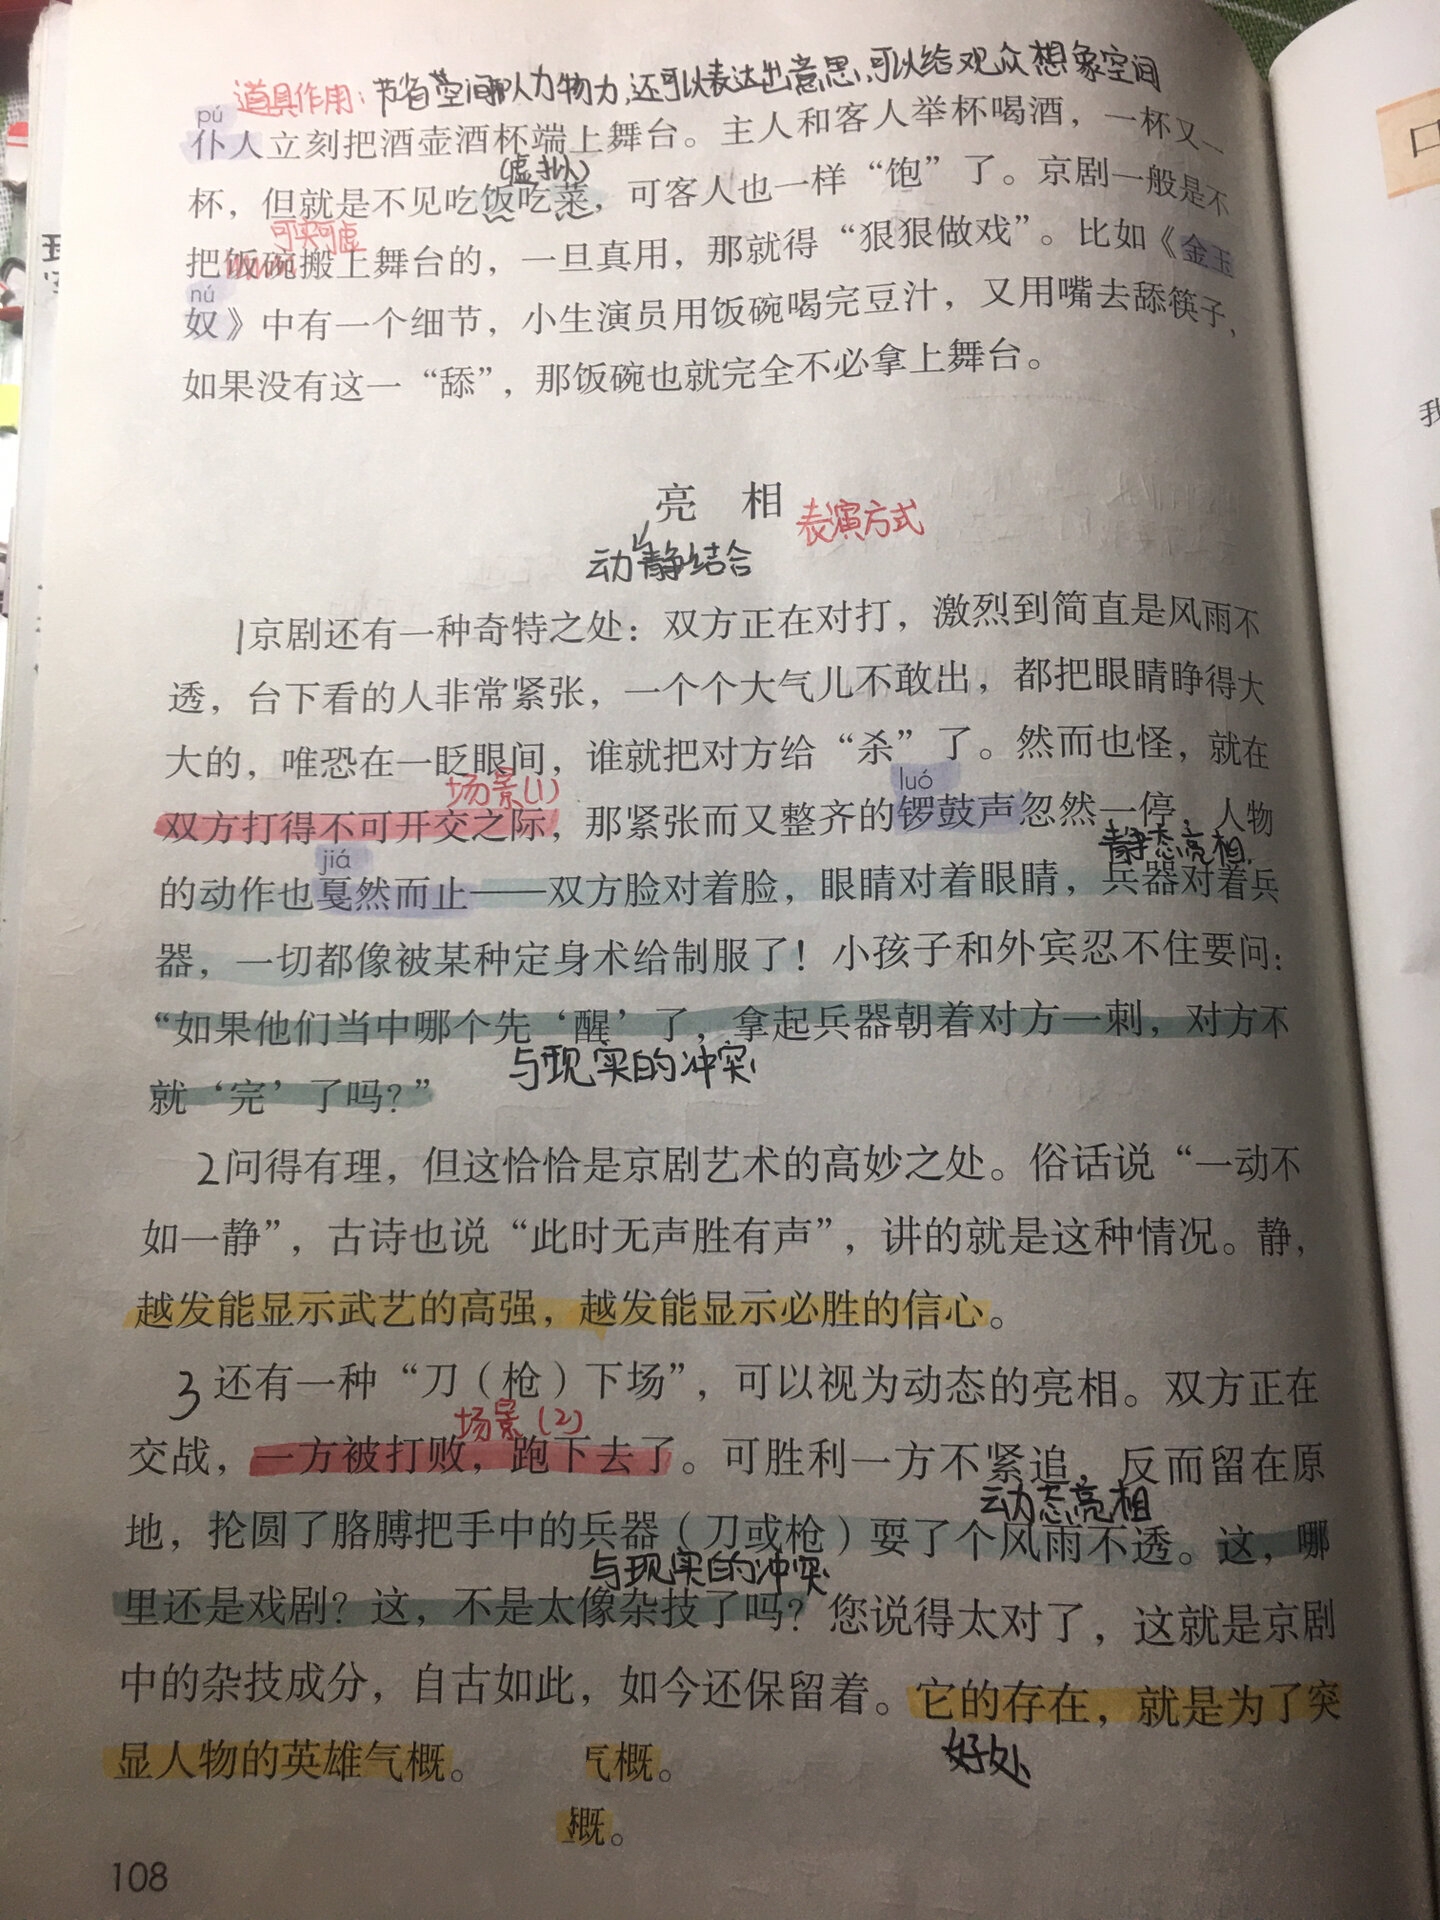 道具作用：节省空间和人力物力，还可以表达出意思，可以给观众想象空间
pú
仆人立刻把酒壶酒杯端上舞台。主人和客人举杯喝酒，一杯又一
(虚拟)
杯，但就是不见吃饭吃菜，可客人也一样“饱”了。京剧一般是不
可实可虚
把饭碗搬上舞台的，一旦真用，那就得“狠狠做戏”。比如《金玉
nú
奴》中有一个细节，小生演员用饭碗喝完豆汁，又用嘴去舔筷子，
如果没有这一“舔”，那饭碗也就完全不必拿上舞台。
亮 相 表演方式
动静结合
1京剧还有一种奇特之处：双方正在对打，激烈到简直是风雨不
透，台下看的人非常紧张，一个个大气儿不敢出，都把眼睛睁得大
大的，唯恐在一眨眼间，谁就把对方给“杀”了。然而也怪，就在
场景(1) luó
双方打得不可开交之际，那紧张而又整齐的锣鼓声忽然一停，人物
jiá 静态亮相
的动作也戛然而止——双方脸对着脸，眼睛对着眼睛，兵器对着兵
器，一切都像被某种定身术给制服了！小孩子和外宾忍不住要问：
“如果他们当中哪个先‘醒’了，拿起兵器朝着对方一刺，对方不
与现实的冲突
就‘完’了吗？”
2问得有理，但这恰恰是京剧艺术的高妙之处。俗话说“一动不
如一静”，古诗也说“此时无声胜有声”，讲的就是这种情况。静，
越发能显示武艺的高强，越发能显示必胜的信心。
3还有一种“刀（枪）下场”，可以视为动态的亮相。双方正在
场景(2)
交战，一方被打败，跑下去了。可胜利一方不紧追，反而留在原
动态亮相
地，抡圆了胳膊把手中的兵器（刀或枪）耍了个风雨不透。这，哪
与现实的冲突
里还是戏剧？这，不是太像杂技了吗？您说得太对了，这就是京剧
中的杂技成分，自古如此，如今还保留着。它的存在，就是为了突
好处
显人物的英雄气概。 气概。
概。
108
口
我